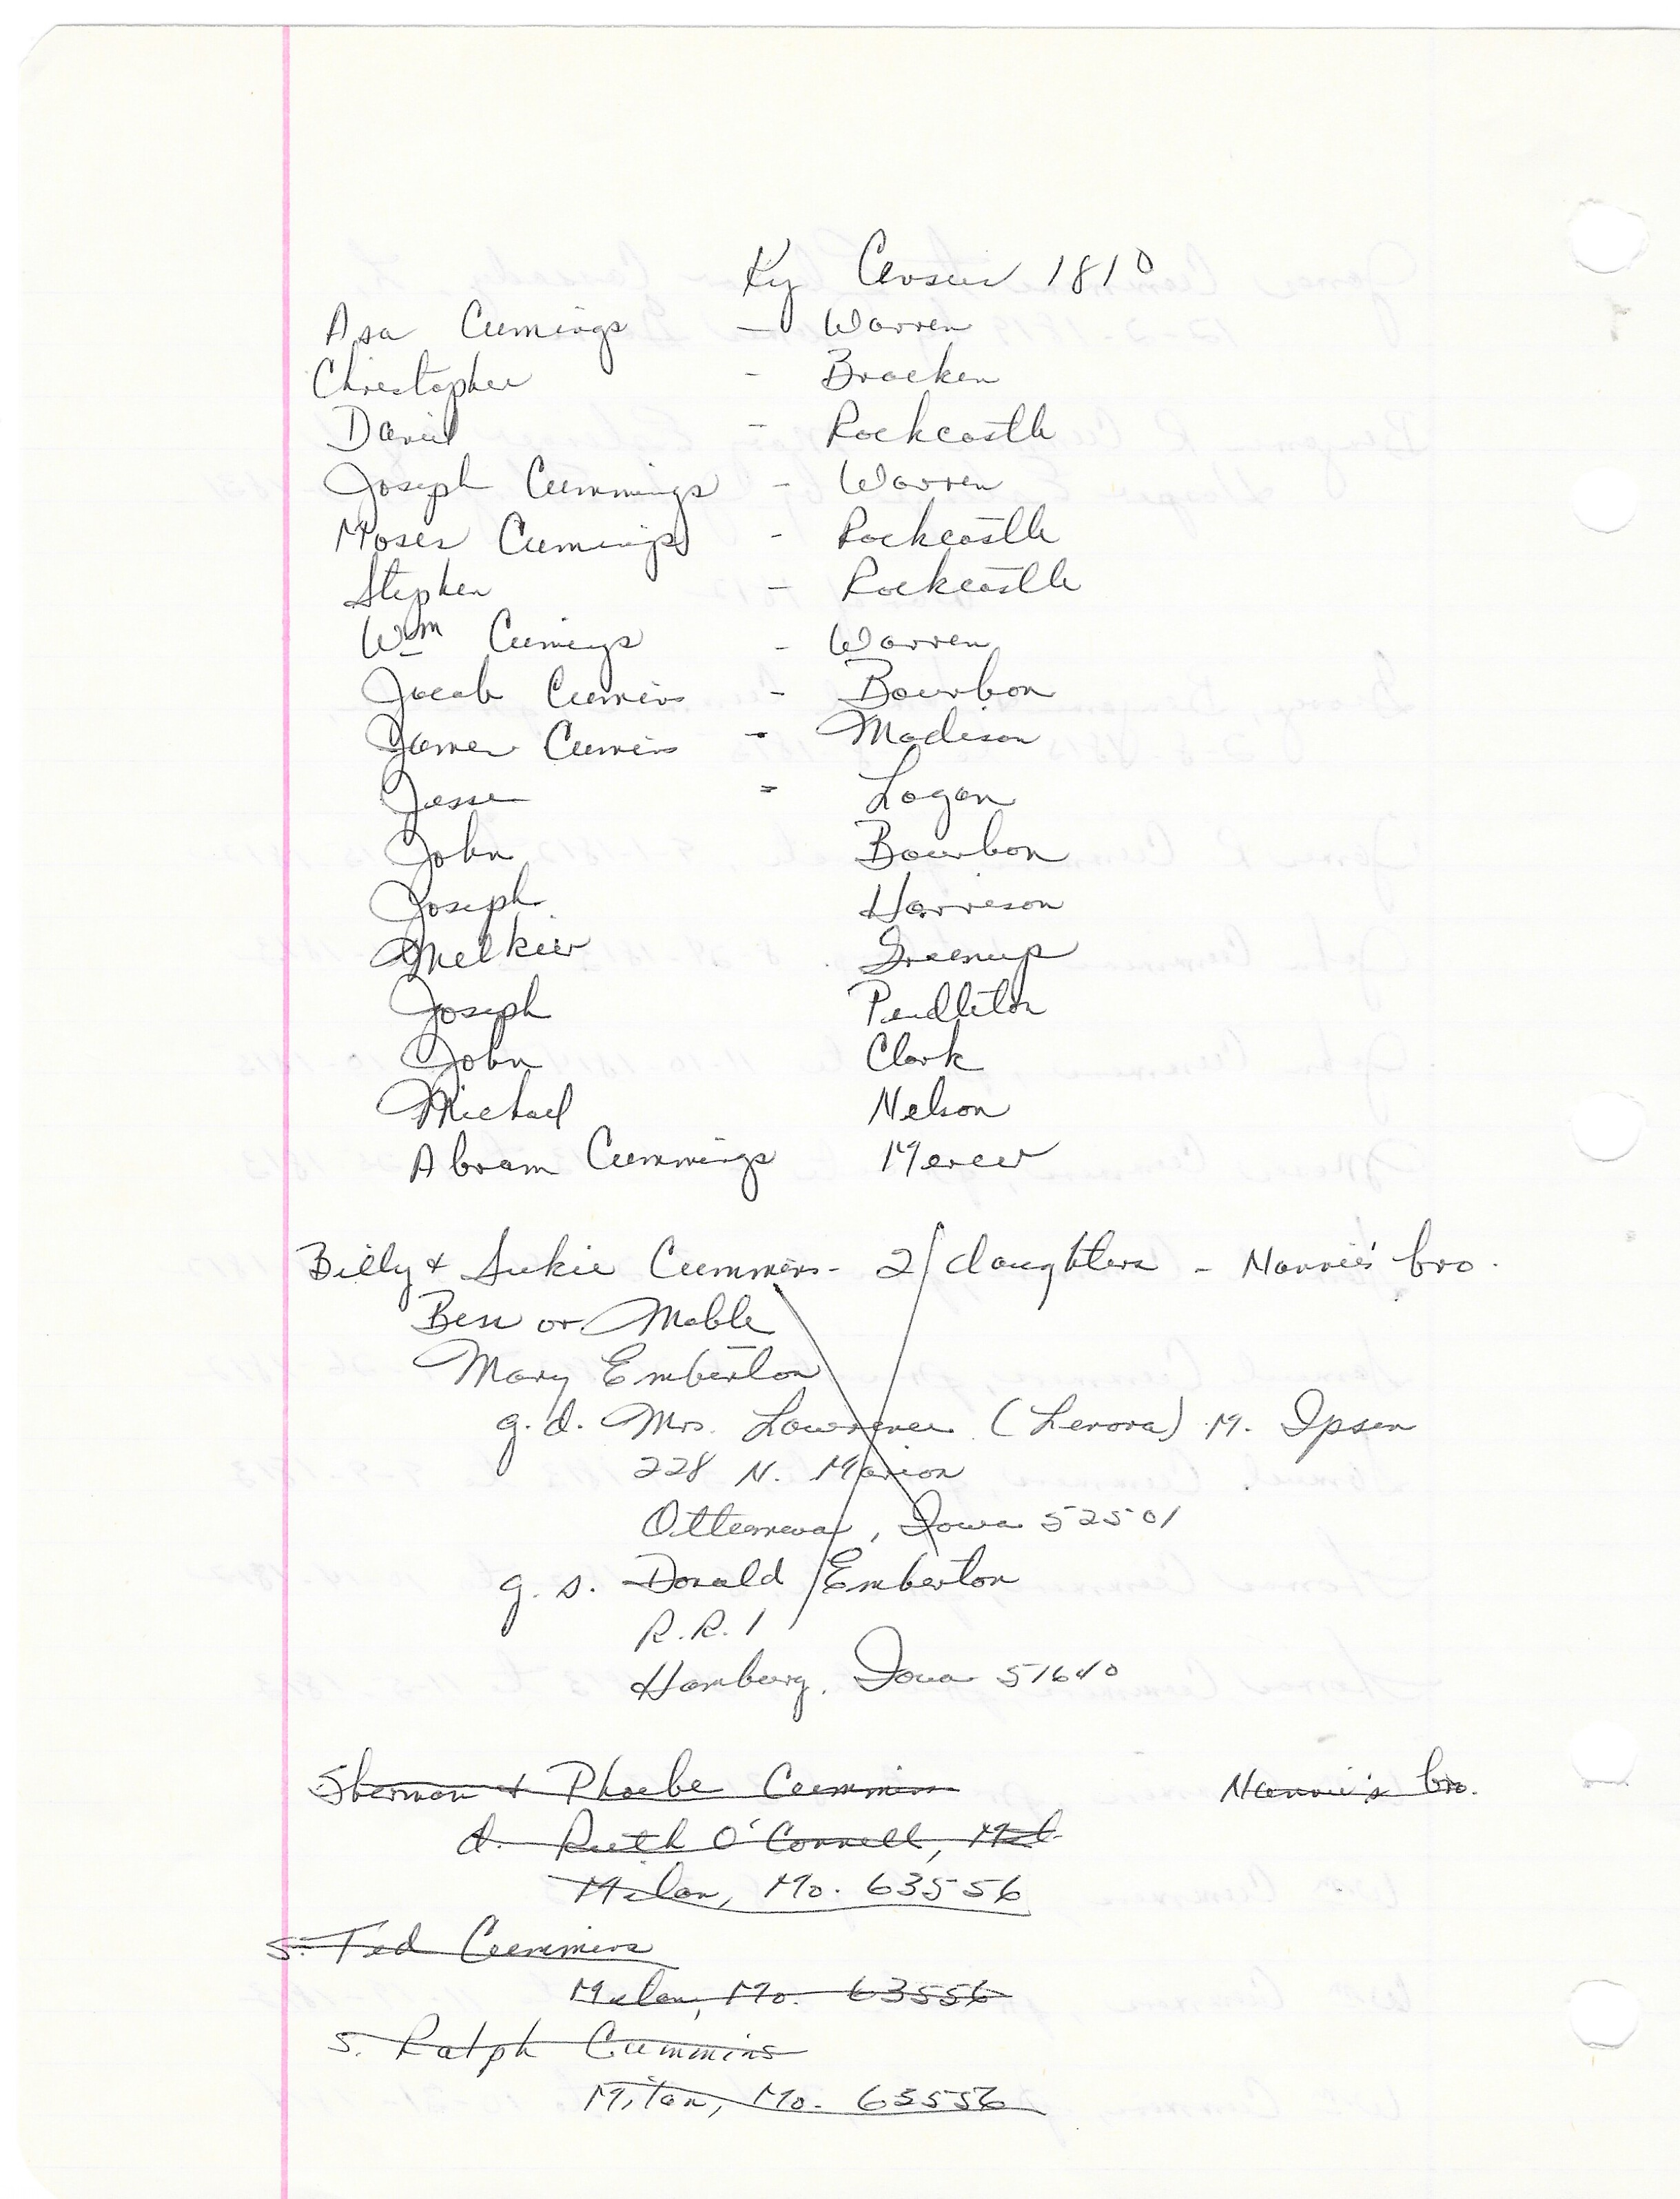 Ky Census 1810
Asa Cumings - Warren
Christopher - Bracken
Daniel - Rockcastle
Joseph Cummings - Warren
Moses Cumings - Rockcastle
Stephen - Rockcastle
Wm Cumings - Warren
Jacob Cumins - Bourbon
James Cumins - Madison
Jesse = Logan
John Bourbon
Joseph Harrison
Melkier Greenup
Joseph Pendleton
John Clark
Michael Nelson
Abram Cummings Mercer
Billy & Sukie Cummins - 2 daughters - Nannie's bro.
Bess or Mable
Mary Emberton
g.d. Mrs. Lawrence (Lenora) M. Ipsen
228 N. Marion
Ottumwa, Iowa 52501
g.s. Donald Emberton
R.R. 1
Hamburg, Iowa 51640
Sherman & Phoebe Cummins Nannie's bro.
d. Ruth O'Connell,
Milan, Mo. 63556
s. Ted Cummins
Milan, Mo. 63556
s. Ralph Cummins
Milan, Mo. 63556